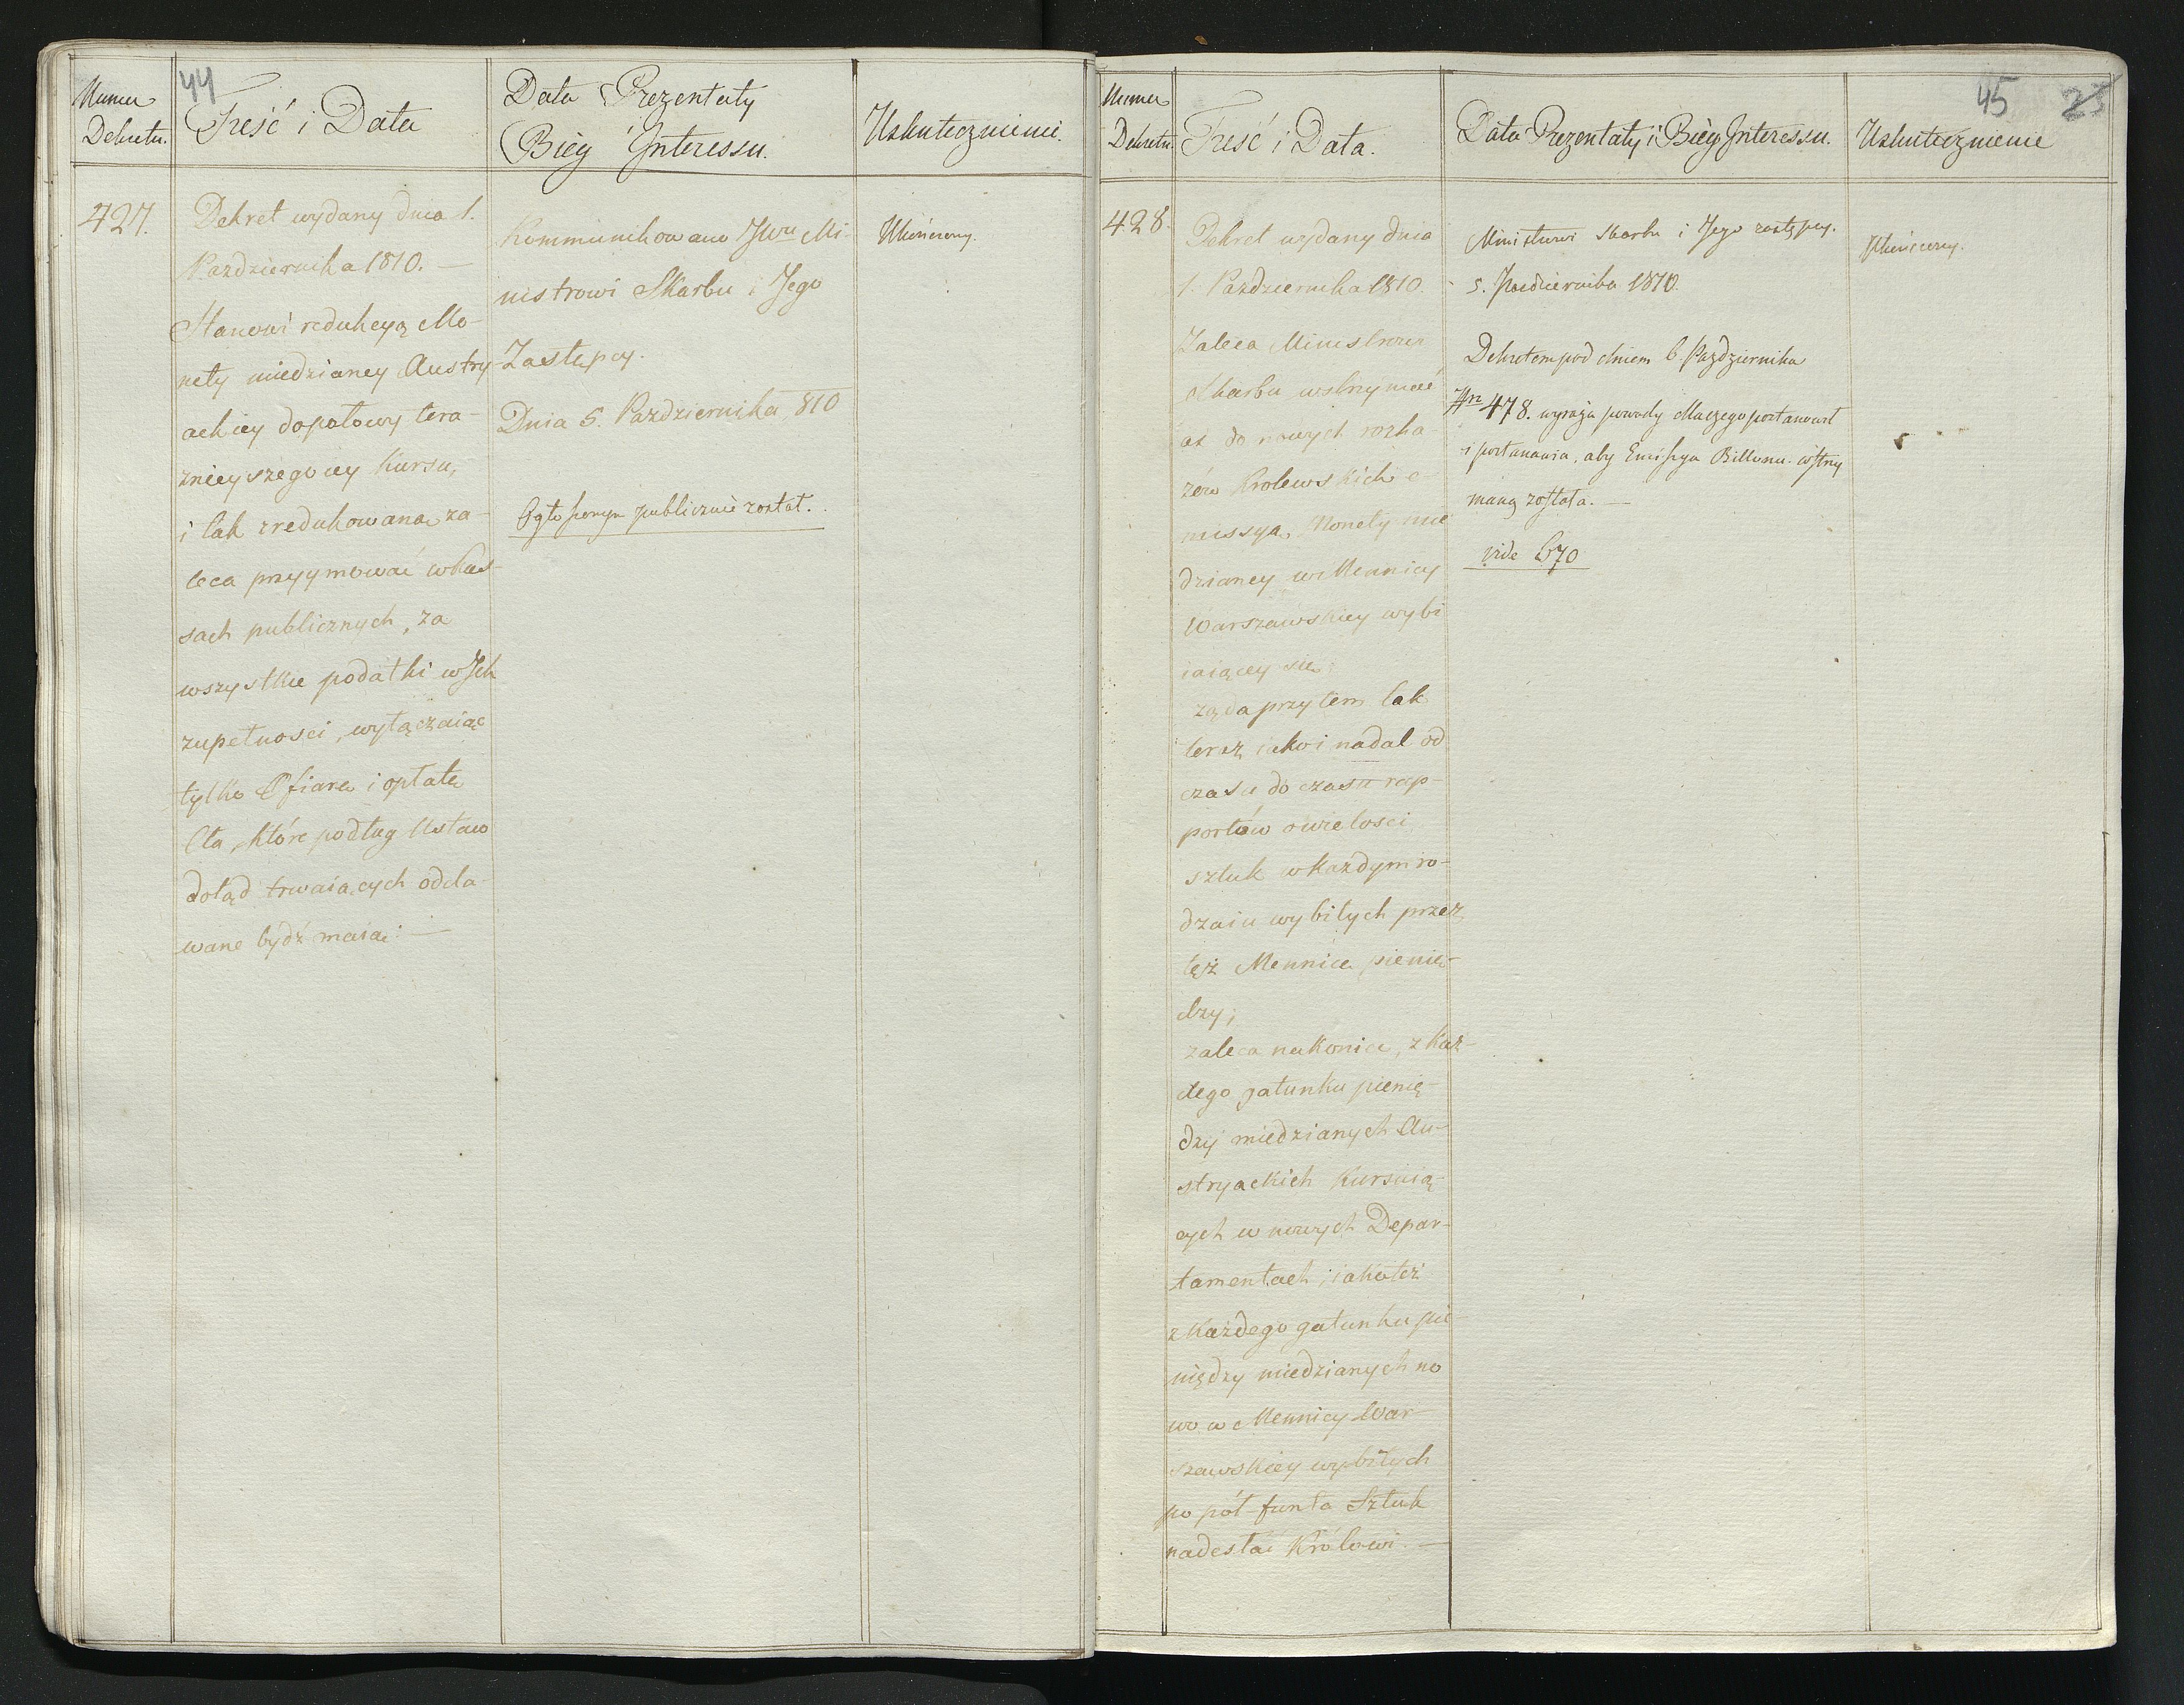 44
Numer
Dekretu.
Treść i Data
Data Prezentaty
Bieg Interessu.
Uskutecznienie.
427.
Dekret wydany dnia 1.
Pazdziernika 1810. —
Stanowi redukcyą Mo-
nety miedzianey Austry-
ackiey dopołowy tera-
znieyszegoiey Kursu,
i tak zredukowaną za-
leca przyymować wKas-
sach publicznych, za
wszystkie podatki wIch
zupełnosci, wyłączaiąc
tylko Ofiarę i opłatę
Cła, które podług Ustaw
dotąd trwaiących odda-
wane bydź maią. —
Kommunikowano JWu Mi-
nistrowi Skarbu i Jego
Zastępcy.
Dnia 5. Pazdziernika 810
Ogłoszonym publicznie został.
Ukończony.
45 23
Numer
Dekretu.
Treść i Data.
Data Prezentaty i Bieg Interessu.
Uskutecznienie
428.
Dekret wydany dnia
1. Pazdziernika 1810.
Zaleca Ministrowi
Skarbu wstrzymać
aż do nowych rozka-
zów Krolewskich e-
missyą Monety mie
dzianey w Mennicy
Warszawskiey wybi
iaiącey się;
żąda przytem tak
teraz iako i nadal od
czasu do czasu rap-
portów o wielosci
sztuk w każdym ro-
dzaiu wybitych przez
tęż Mennicę pienię-
dzy;
zaleca nakoniec, z Każ-
dego gatunku pienię-
dzy miedzianych Au-
stryackich Kursuią-
cych w nowych Depar-
tamentach, iakoteż
z Każdego gatunku pie
niędzy miedzianych no
wo w Mennicy War-
szawskiey wybitych
po pół funta Sztuk
nadesłać Królowi. —
Ministrowi Skarbu i Jego zastępcy.
5. Pazdziernika 1810.
Dekretem pod dniem 6. Pazdziernika
Nro 478. wyraża powody dlaczego postanowił
i postanawia, aby Emissya Billonu wstrzy
maną została. —
vide 670
Ukończony.